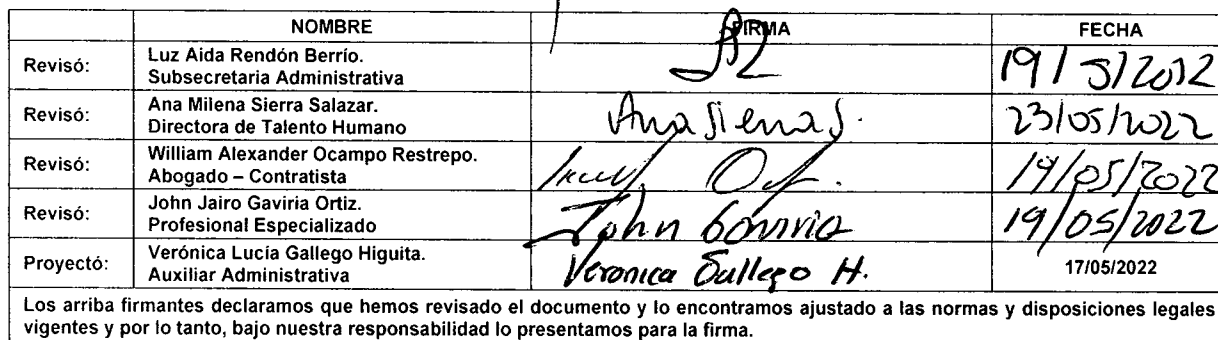 NOMBRE FIRMA FECHA
Revisó: Luz Aida Rendón Berrío.
Subsecretaria Administrativa
19/5/2022
Revisó: Ana Milena Sierra Salazar.
Directora de Talento Humano
Ana Sierra S. 23/05/2022
Revisó: William Alexander Ocampo Restrepo.
Abogado – Contratista
19/05/2022
Revisó: John Jairo Gaviria Ortiz.
Profesional Especializado
John Gaviria 19/05/2022
Proyectó: Verónica Lucía Gallego Higuita.
Auxiliar Administrativa
Veronica Gallego H. 17/05/2022
Los arriba firmantes declaramos que hemos revisado el documento y lo encontramos ajustado a las normas y disposiciones legales
vigentes y por lo tanto, bajo nuestra responsabilidad lo presentamos para la firma.